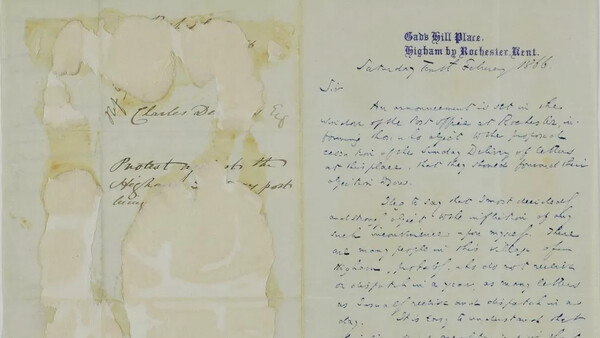 Charles Esq
Protest the
Higham post
being
Gad's Hill Place.
Higham by Rochester, Kent.
Saturday Tenth February 1866.
Sir
An announcement is set in the
window of the Post office at Rochester, in-
forming those who object to the proposed
cessation of the Sunday Delivery of letters
at this place, that they should forward their
objection
I beg to say that I most decidedly
and strongly object to the infliction of any
such inconvenience upon myself. There
are many people in this village of
Higham, probably, who do not receive
or dispatch in a year, as many letters
as I usually receive and dispatch in a
day. It is easy to understand that